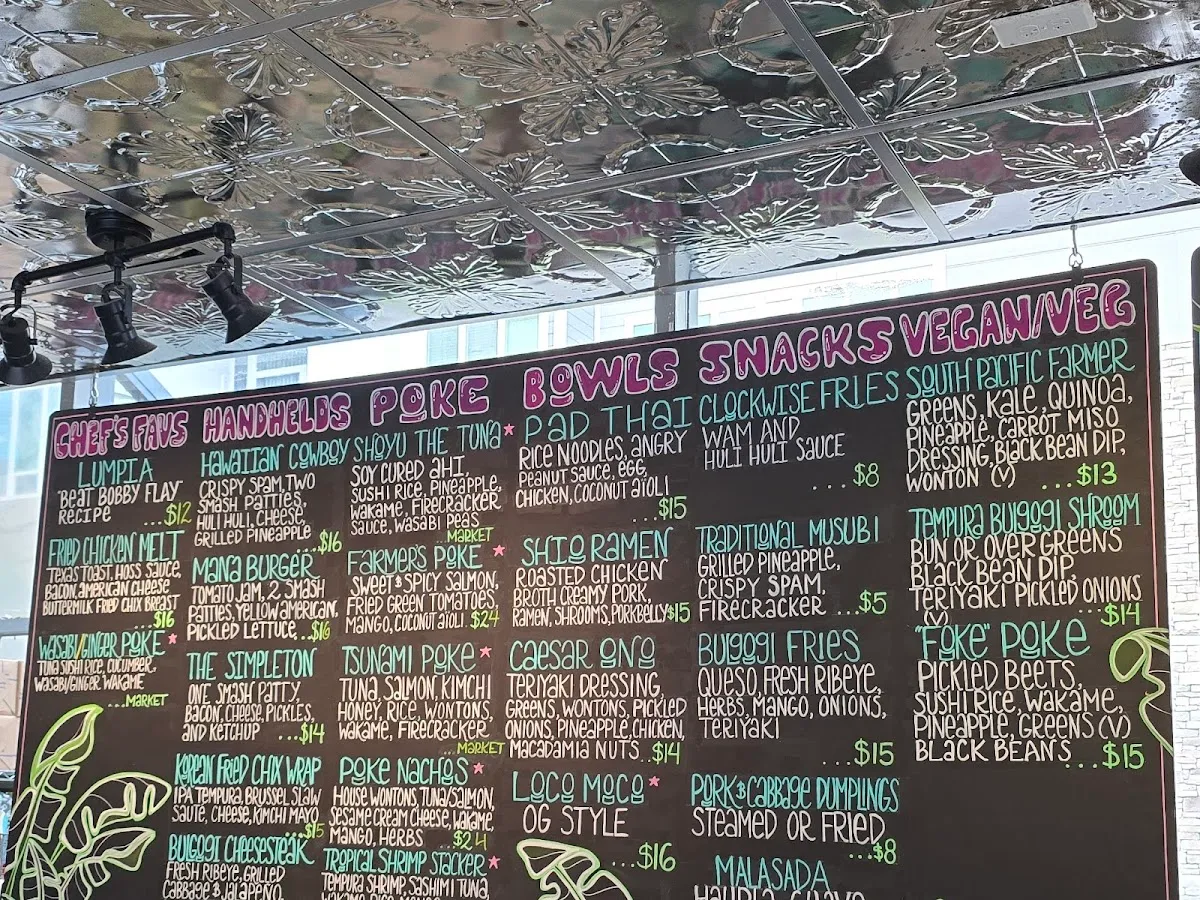 CHEF'S FAVS
LUMPIA
"BEAT BOBBY FLAY"
RECIPE ...$12
FRIED CHICKEN MELT
TEXAS TOAST, HOSS SAUCE,
BACON, AMERICAN CHEESE
BUTTERMILK FRIED CHIX BREAST
...$16
WASABI/GINGER POKE *
TUNA SUSHI RICE, CUCUMBER,
WASABI/GINGER WAKAME
...MARKET
HANDHELDS
HAWAIIAN COWBOY
CRISPY SPAM, TWO
SMASH PATTIES,
HULI HULI, CHEESE,
GRILLED PINEAPPLE ...$16
MANA BURGER
TOMATO JAM, 2 SMASH
PATTIES, YELLOW AMERICAN,
PICKLED LETTUCE ...$16
THE SIMPLETON
ONE SMASH PATTY,
BACON, CHEESE, PICKLES,
AND KETCHUP ...$14
KOREAN FRIED CHIX WRAP
IPA TEMPURA, BRUSSEL SLAW
SAUTE, CHEESE, KIMCHI MAYO
...$15
BULGOGI CHEESESTEAK
FRESH RIBEYE, GRILLED
CABBAGE & JALAPEÑO,
POKE
SHOYU THE TUNA *
SOY CURED AHI,
SUSHI RICE, PINEAPPLE,
WAKAME, FIRECRACKER
SAUCE, WASABI PEAS
...MARKET
FARMER'S POKE *
SWEET & SPICY SALMON,
FRIED GREEN TOMATOES,
MANGO, COCONUT AIOLI ..$24
TSUNAMI POKE *
TUNA, SALMON, KIMCHI
HONEY, RICE, WONTONS,
WAKAME, FIRECRACKER
...MARKET
POKE NACHOS *
HOUSE WONTONS, TUNA/SALMON,
SESAME CREAM CHEESE, WAKAME,
MANGO, HERBS ...$24
TROPICAL SHRIMP STACKER *
TEMPURA SHRIMP, SASHIMI TUNA,
WAKAME, RICE, MANGO
BOWLS
PAD THAI
RICE NOODLES, ANGRY
PEANUT SAUCE, EGG,
CHICKEN, COCONUT AIOLI
...$15
SHIO RAMEN
ROASTED CHICKEN
BROTH CREAMY PORK,
RAMEN, SHROOMS, PORKBELLY $15
CAESAR ONO
TERIYAKI DRESSING,
GREENS, WONTONS, PICKLED
ONIONS, PINEAPPLE, CHICKEN,
MACADAMIA NUTS ..$14
LOCO MOCO *
OG STYLE
...$16
SNACKS
CLOCKWISE FRIES
WAM AND
HULI HULI SAUCE
....$8
TRADITIONAL MUSUBI
GRILLED PINEAPPLE,
CRISPY SPAM,
FIRECRACKER ...$5
BULGOGI FRIES
QUESO, FRESH RIBEYE,
HERBS, MANGO, ONIONS,
TERIYAKI
$15
PORK & CABBAGE DUMPLINGS
STEAMED OR FRIED
...$8
MALASADA
VEGAN/VEG
SOUTH PACIFIC FARMER
GREENS, KALE, QUINOA,
PINEAPPLE, CARROT MISO
DRESSING, BLACK BEAN DIP,
WONTON (V) ...$13
TEMPURA BULGOGI SHROOM
BUN OR OVER GREENS
BLACK BEAN DIP,
TERIYAKI PICKLED ONIONS
(V) ...$14
"FOKE" POKE
PICKLED BEETS,
SUSHI RICE, WAKAME,
PINEAPPLE, GREENS (V)
BLACK BEANS ...$15